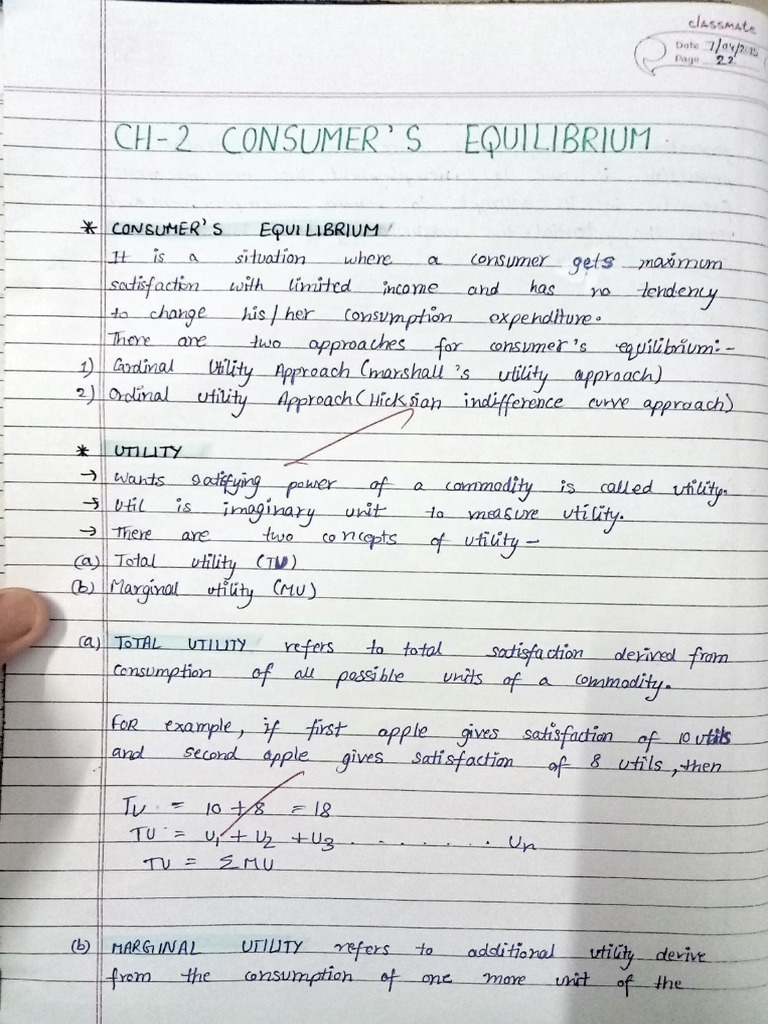 classmate
Date 7/04/20
Page 22
CH-2 CONSUMER'S EQUILIBRIUM
* CONSUMER'S EQUILIBRIUM
It is a situation where a consumer gets maximum
satisfaction with limited income and has no tendency
to change his/her consumption expenditure.
There are two approaches for consumer's equilibrium:-
1) Cardinal Utility Approach (marshall's utility approach)
2) Ordinal utility Approach (Hicksian indifference curve approach)
* UTILITY
→ Wants satisfying power of a commodity is called utility.
→ Util is imaginary unit to measure utility.
→ There are two concepts of utility -
(a) Total utility (TU)
(b) Marginal utility (MU)
(a) TOTAL UTILITY refers to total satisfaction derived from
consumption of all possible units of a commodity.
FOR example, if first apple gives satisfaction of 10 utils
and second apple gives satisfaction of 8 utils, then
TU = 10 + 8 = 18
TU = U₁ + U₂ + U₃ . . . . . . . . Un
TU = ΣMU
(b) MARGINAL UTILITY refers to additional utility derive
from the consumption of one more unit of the